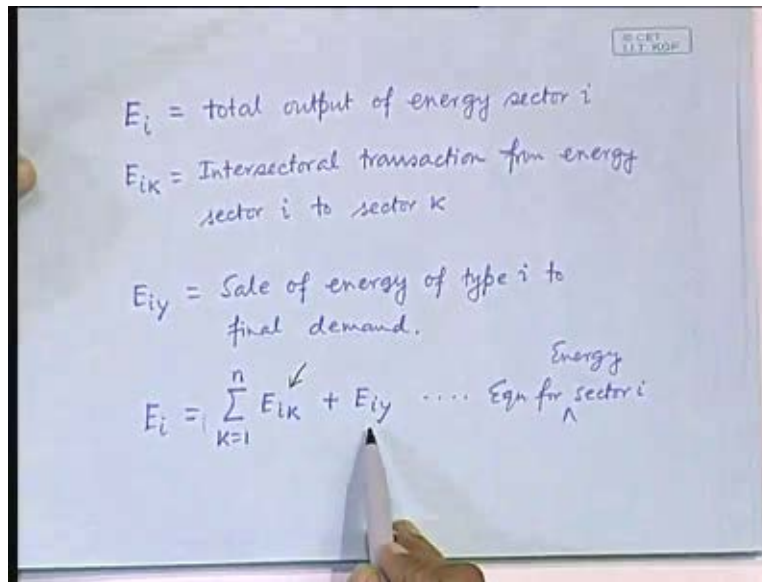 © CET
I.I.T. KGP
Eᵢ = total output of energy sector i
Eᵢₖ = Intersectoral transaction from energy
sector i to sector K
Eᵢᵧ = Sale of energy of type i to
final demand.
Energy
Eᵢ = Σ_{K=1}^{n} Eᵢₖ + Eᵢᵧ .... Eqn for ^ sector i